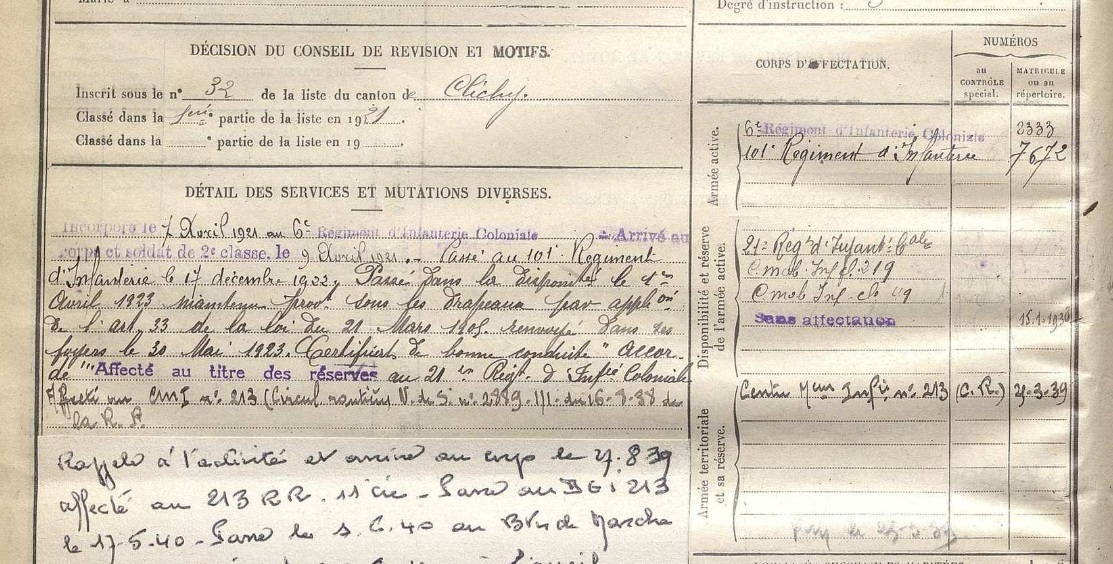 Degré d'instruction :
DÉCISION DU CONSEIL DE REVISION ET MOTIFS.
Inscrit sous le n° 32 de la liste du canton de Clichy.
Classé dans la 1ère partie de la liste en 1921.
Classé dans la ° partie de la liste en 19
DÉTAIL DES SERVICES ET MUTATIONS DIVERSES.
Incorporé le 7 Avril 1921 au 6e Régiment d'Infanterie Coloniale Arrivé au
corps et soldat de 2e classe, le 9 Avril 1921. Passé au 101e Régiment
d'Infanterie le 17 décembre 1922. Passé dans la disponité le 1er
Avril 1923 maintenu provt sous les drapeaux par applon
de l'art. 33 de la loi du 21 Mars 1905 renvoyé dans ses
foyers le 30 Mai 1923. Certificat de bonne conduite "accor-
dé" Affecté au titre des réserves au 21 Régt d'Infie Coloniale
Affecté au CMI n° 213 (Circul N. de S. n° 2889 du 16-3-38 de
la R. P.
Rappelé à l'activité et arrivé au corps le 27.8.39
affecté au 213 RR. 11 cie - Passé au DGI 213
le 17-5-40 - Passé le au Btn de Marche
CORPS D'AFFECTATION.
NUMÉROS
au CONTRÔLE spécial.
MATRICULE ou au répertoire.
Armée active.
6e Régiment d'Infanterie Coloniale 2333
101e Régiment d'Infanterie 7672
Disponibilité et réserve de l'armée active.
21e Régt d'Infant Cale
C mob. Inf. 219
C mob Inf. 49
Sans affectation 15-1-193
Armée territoriale et sa réserve.
Centre Mon Infie n° 213 (C.R.) 2-3-39